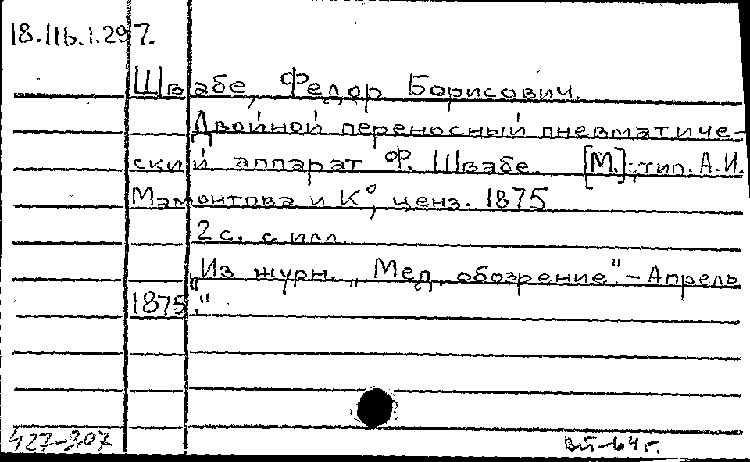 18.116.1.297.
Швабе, Федор Борисович.
Двойной переносный пневматиче-
ский аппарат Ф. Швабе. [М.], тип. А.И.
Мамонтова и К°, ценз. 1875
2 с. с илл.
„Из журн. „Мед. обозрение"–Апрель
1875."
427-207
ВП-64 г.